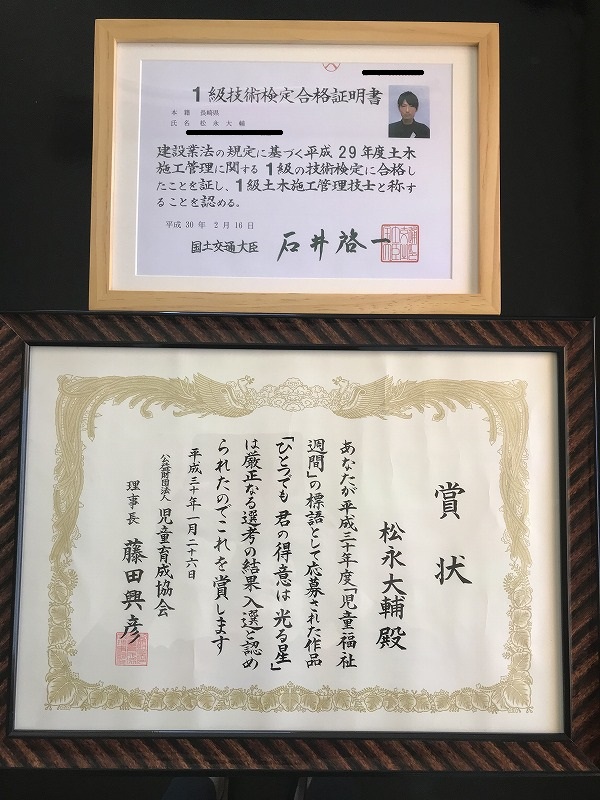 1級技術検定合格証明書
本籍 長崎県
氏名 松永大輔
建設業法の規定に基づく平成29年度土木
施工管理に関する1級の技術検定に合格し
たことを証し、1級土木施工管理技士と称す
ることを認める。
平成30年 2月16日
国土交通大臣 石井啓一
賞状
松永大輔殿
あなたが平成三十年度「児童福祉
週間」の標語として応募された作品
「ひとつでも 君の得意は 光る星」
は厳正なる選考の結果入選と認め
られたのでこれを賞します
平成三十年一月二十六日
公益財団法人 児童育成協会
理事長 藤田興彦